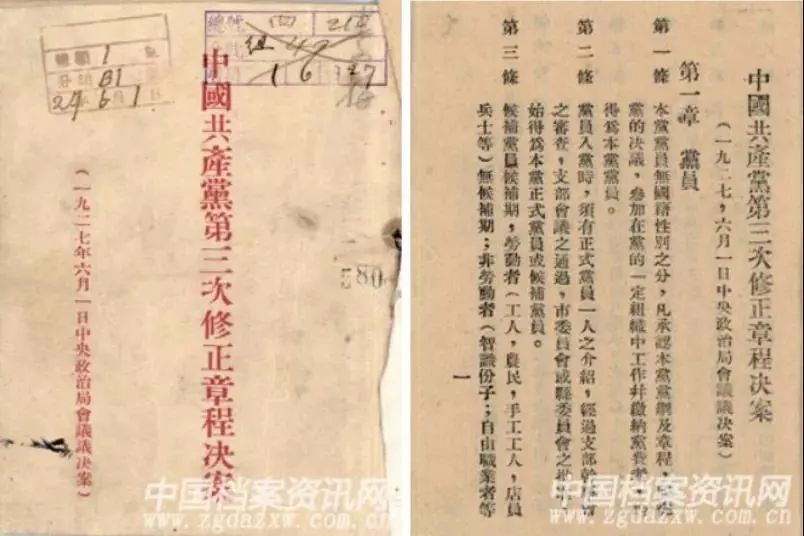 總號 四
組 42
1 6 127
1
B1
24 6 1
中國共產黨第三次修正章程决案
(一九二七年六月一日中央政治局會議議决案)
580
中国档案资讯网
www.zgdazxw.com.cn
中國共產黨第三次修正章程决案
(一九二七,六月一日中央政治局會議議决案)
第一章 黨員
第一條 本黨黨員無國籍性別之分,凡承認本黨黨綱及章程,
黨的决議,參加在黨的一定組織中工作幷繳納黨費
得爲本黨黨員。
第二條 黨員入黨時,須有正式黨員一人之介紹,經過支部幹
之審查,支部會議之通過,市委員會或縣委員會之批
始得爲本黨正式黨員或候補黨員。
第三條 候補黨員候補期,勞動者(工人,農民,手工工人,店員
兵士等)無候補期;非勞動者(智識份子;自由職業者等
一
中国档案资讯网
www.zgdazxw.com.cn